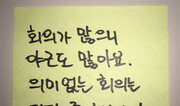 회의가 많으니
야근도 많아요.
의미 없는 회의는